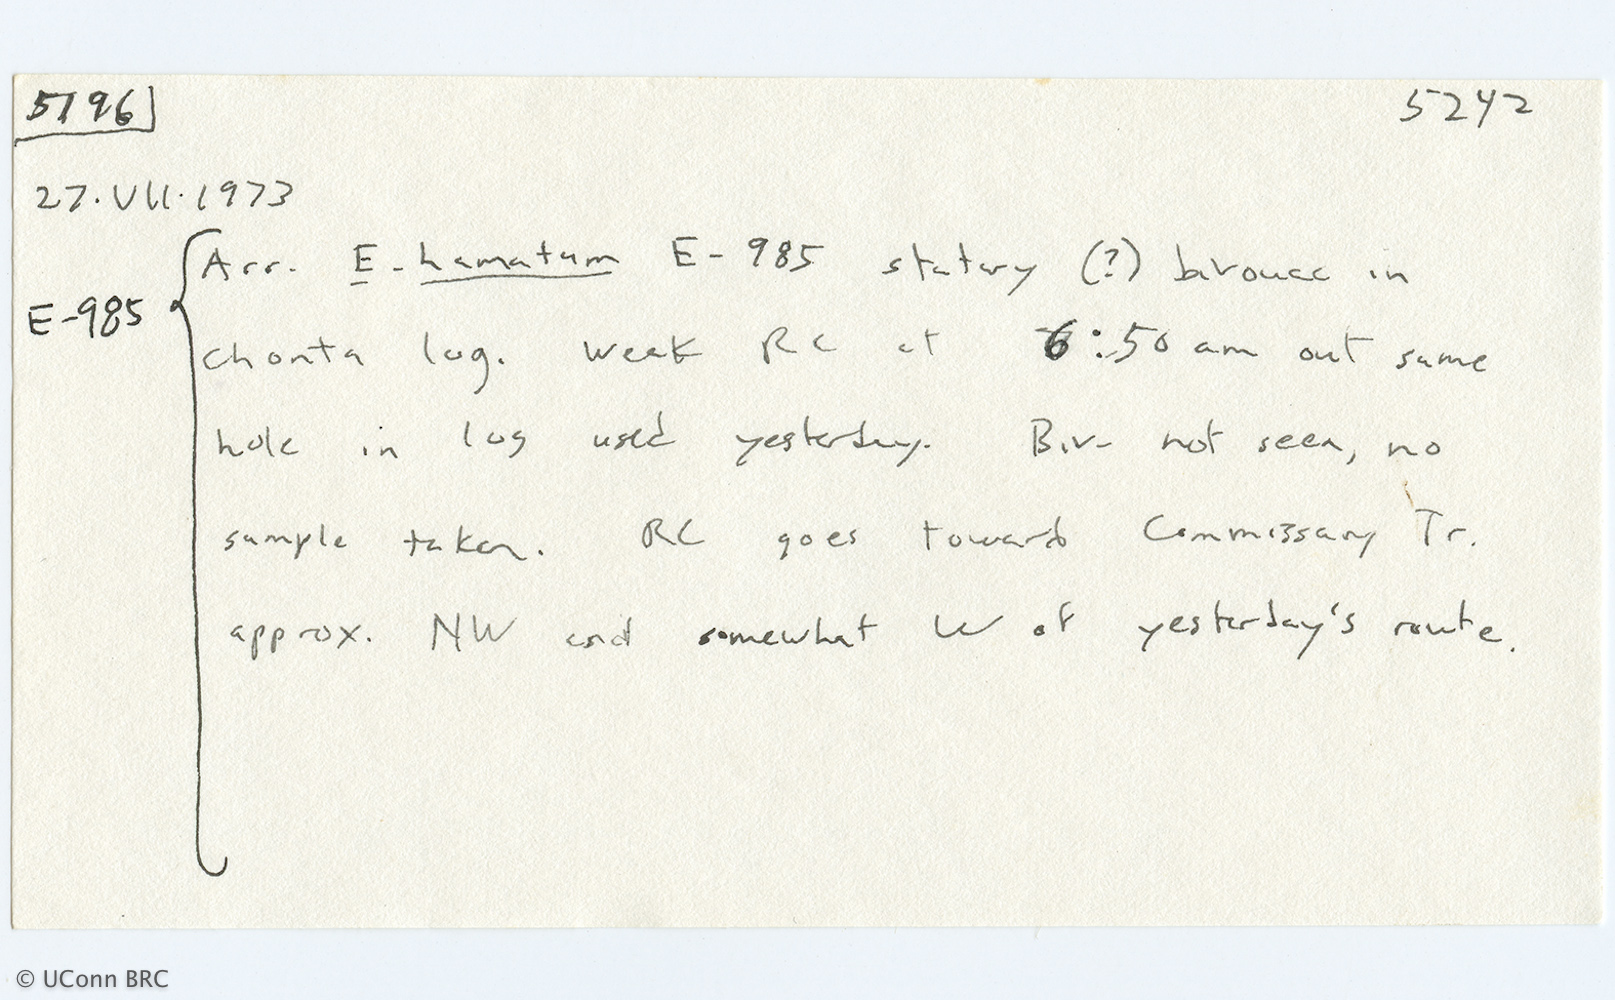 5196
5242
27.VII.1973
E-985
Arr. E. hamatum E-985 statary (?) bivouac in
chonta log. Weak RC at 6:50 am out same
hole in log used yesterday. Biv. not seen, no
sample taken. RC goes toward Commissary Tr.
approx. NW and somewhat W of yesterday's route.
© UConn BRC